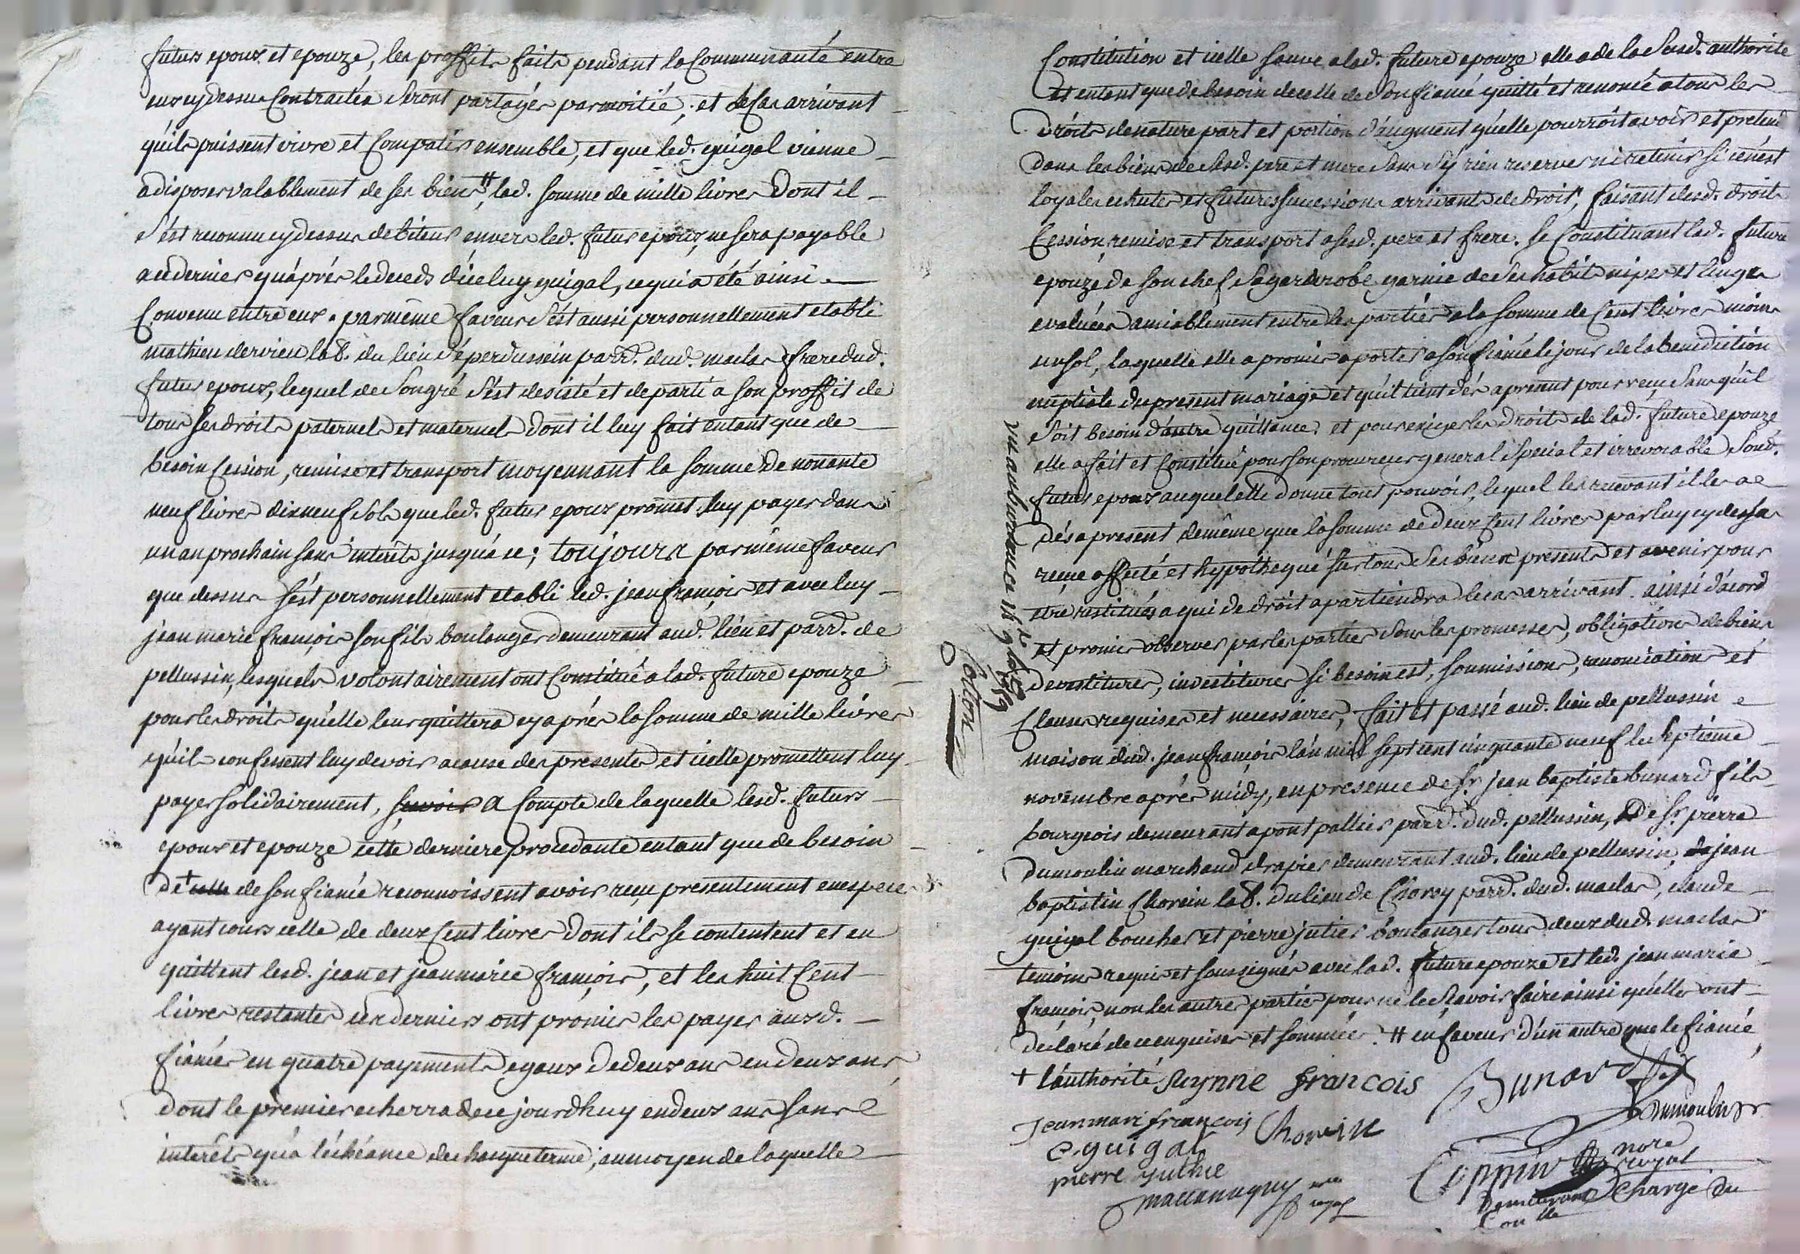 futurs epoux et epouze, les proffits faits pendant la Communauté entre
eux cydessus Contractée Seront partagés par moitié; et le Cas arrivant
qu'ils puissent vivre et Compatir ensemble, et que led. guigal vienne
a disposer valablement de ses biens # lad. somme de mille livres dont il
s'est reconnu cydessus debiteur envers led. futur epoux, ne sera payable
au dernier qu'après le deceds d'iceluy guigal, ce qui a été ainsi
Convenu entre eux. par même faveur s'est aussi personnellement etabli
mathieu dervieu lab. du lieu d'éperdussein parr. dud. maclas frere dud.
futur epoux, lequel de Son gré S'est desisté et departi a son proffit de
tous ses droits paternels et maternels dont il luy fait entant que de
besoin Cession, remise et transport moyennant la somme de nonante
neuf livres dixneuf sols que led. futur epoux promet luy payer dans
un an prochain sans interêts jusqu'a ce; toujours par même faveur
que dessus s'est personnellement etabli led. jean françois et avec luy
jean marie françois son fils boulanger demeurant aud. lieu et parr. de
pellussin, lesquels volontairement ont Constitué a lad. future epouze
pour les droits qu'elle leur quittera cy après la somme de mille livres
qu'ils confessent luy devoir a cause des presentes et icelle promettent luy
payer solidairement, scavoir a Compte de laquelle lesd. futurs
epoux et epouze cette derniere procedante entant que de besoin
de + celle de son fiancé reconnoissent avoir reçu presentement en espece
ayant cours celle de deux Cent livres dont ils se contentent et en
quittent lesd. jean et jean marie françois, et les huit Cent
livres restantes ces derniers ont promis les payer ausd.
fiancés en quatre payements egaux de deux ans en deux ans,
dont le premier echerra de ce jourdhuy en deux ans sans
interêts qu'a l'échéance de chaque terme, au moyen de laquelle
Constitution et icelle sauve a lad. future epouze elle a de la Susd. authorité
et entant que de besoin de celle de Son fiancé quitté et renoncé a tous les
droits de nature part et portion d'augment qu'elle pourroit avoir et pretend
dans les biens de sesd. pere et mere Sans S'y rien reserver ni retenir si ce n'est
loyales echutes et futures successions arrivant de droit, faisant desd. droits
Cession, remise et transport a sesd. pere et frere. se Constituant lad. future
epouze de son chef Sa garderobe garnie de Ses habits nipes et linges
evaluée amiablement entre les parties a la somme de Cent livres moins
un sol, laquelle elle a promis aporter a son fiancé le jour de la benediction
nuptiale du present mariage et qu'il tient dés apresent pour reçue Sans qu'il
Soit besoin d'autre quittance. et pour exiger les droits de lad. future epouze
elle a fait et Constitué pour son procureur general Special et irrevocable Sond.
futur epoux auquel elle donne tout pouvoir, lequel les recevant il les a
désapresent de même que la somme de deux Cent livres par luy cydessus
reçue affecté et hypothequé Sur tous Ses biens presents et avenir pour
etre restitués a qui de droit apartiendra le cas arrivant. ainsi d'acord
et promis observer par les parties Sous les promesses, obligations de biens
devestitures, investitures Si besoin est, soumissions, renonciations et
Clauses requises et necessaires; fait et passé aud. lieu de pellussin
maison dud. jean françois l'an mil sept cent cinquante neuf le septième
novembre après midy, en presence de sr. jean baptiste bunard fils
bourgeois demeurant a pont pallier parr. dud. pellussin, De sr. pierre
Dumoulin marchand drapier demeurant aud. lieu de pellussin, jean
baptistin Chorein lab. du lieu de Choroy parr. dud. maclas, claude
guigal boucher et pierre julier boulanger tous deux dud. maclas
temoins requis et soussignés avec lad. future epouze et led. jean marie
françois, non les autres parties pour ne le Sçavoir faire ainsi qu'elles ont
déclaré de ce enquises et sommées. # en faveur d'un autre que le fiancé
+ l'authorité françois Bunard
Jean mari françois Chorein Dumoulin
C. guigal
pierre
Coppin nore royal
Chargé du
Controlle
Colton